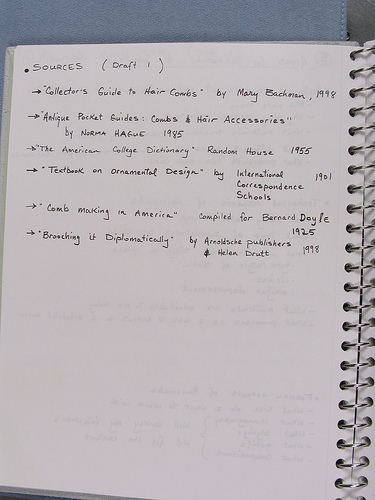 • SOURCES ( Draft : 1 )
→ "Collector's Guide to Hair Combs" by Mary Bachman, 1998
→ "Antique Pocket Guides: Combs & Hair Accessories"
by NORMA HAGUE 1985
→ "The American College Dictionary" Random House 1955
→ "Textbook on Ornamental Design" by International 1901
Correspondence
Schools
→ "Comb making in America" compiled for Bernard Doyle
1925
→ "Brooching it Diplomatically" by Arnoldsche publishers
& Helen Drutt 1998